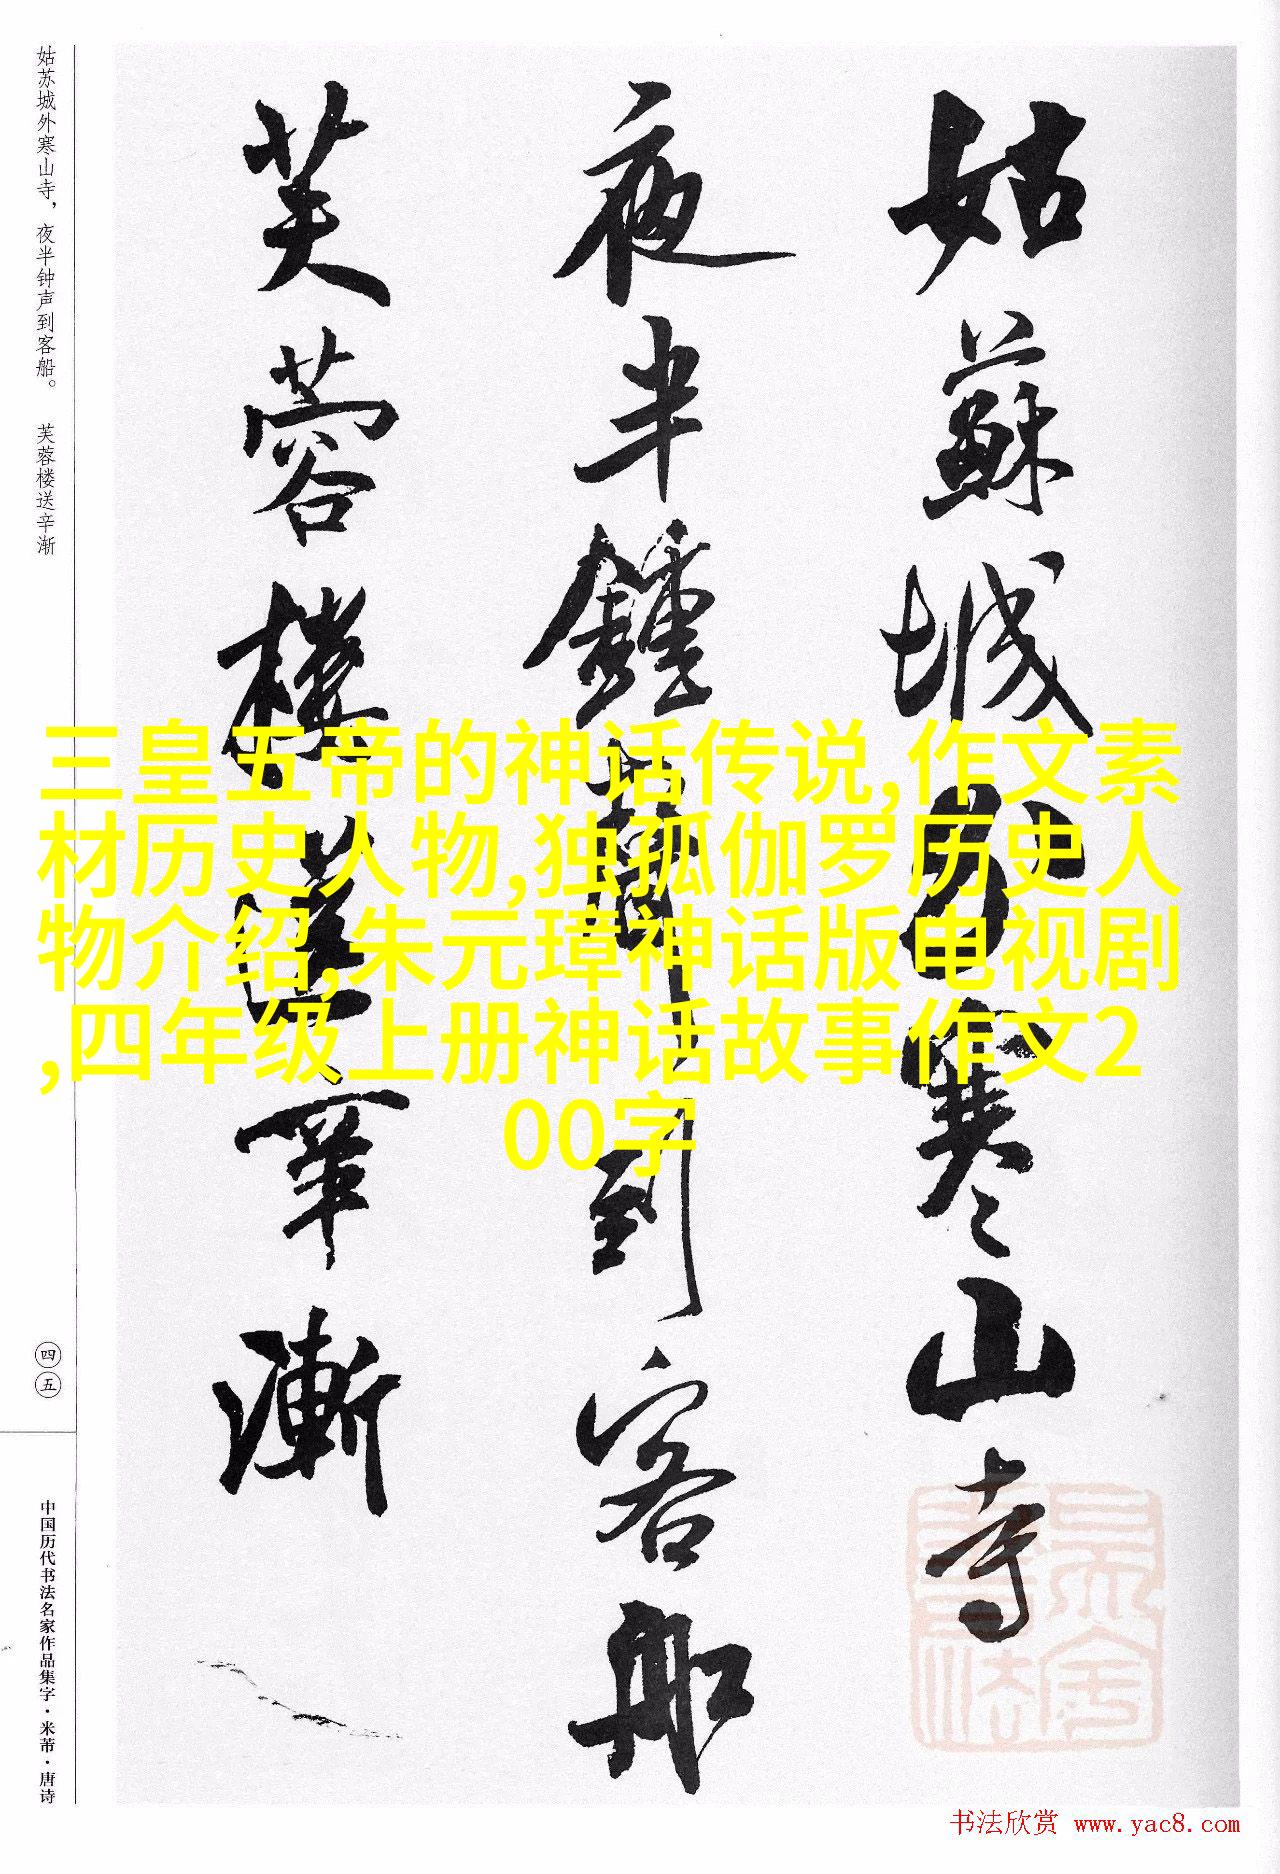 姑苏城外寒山寺，夜半钟声到客船。　芙蓉楼送辛渐
姑蘇城外寒山寺
夜半鍾聲到客船
芙蓉樓送辛漸
三皇五帝的神话传说,作文素
材历史人物,独孤伽罗历史人
物介绍,朱元璋神话版电视剧
,四年级上册神话故事作文2
00字
四五
中国历代书法名家作品集字·米芾·唐诗
书法欣赏 www.yac8.com